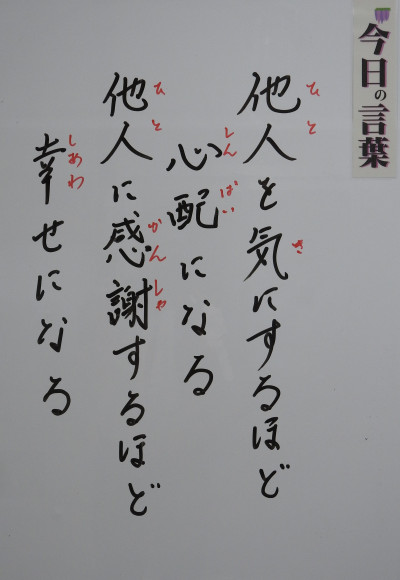 今日の言葉
他人を気にするほど
ひと
き
心配になる
しんぱい
他人に感謝するほど
ひと
かんしゃ
幸せになる
しあわ